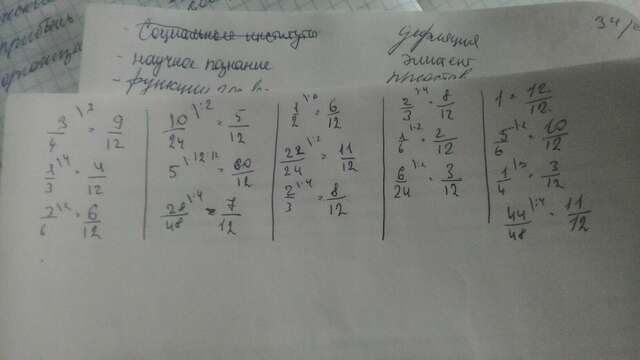 Социальные институты
- научное познание
- функции
дефляция
эмитент
прибыль
3/4 \2 = 9/12
1/3 \4 = 4/12
2/6 \2 = 6/12
10/24 \:2 = 5/12
5 \12 = 60/12
28/48 \:4 = 7/12
1/2 = 6/12
22/24 \:2 = 11/12
2/3 \4 = 8/12
2/3 \4 = 8/12
1/6 \2 = 2/12
6/24 \:2 = 3/12
1 = 12/12
5/6 \2 = 10/12
1/4 \3 = 3/12
44/48 \:4 = 11/12